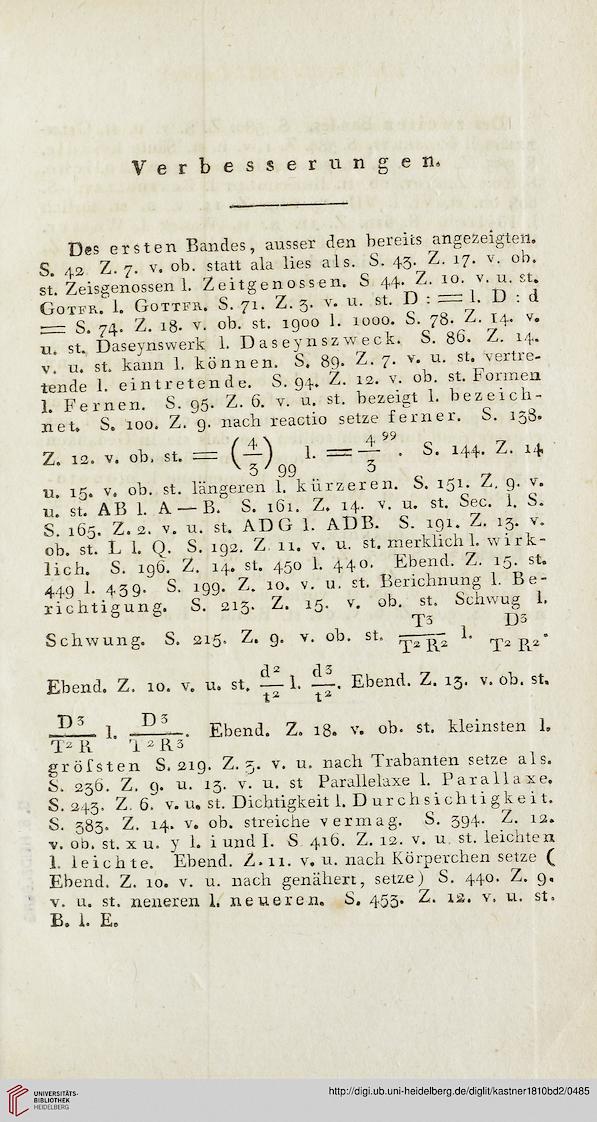 Verbesserungen.
Des ersten Bandes, ausser den bereits angezeigten.
S. 42 Z. 7. v. ob. statt ala lies als. S. 43. Z. 17. v. ob.
st. Zeisgenossen l. Zeitgenossen. S 44. Z. 10. v. u. st.
Gotfr. l. Gottfr. S. 71. Z. 3. v. u. st. D : = l. D : d
= S. 74. Z. 18. v. ob. st. 1900 l. 1000. S. 78. Z. 14. v.
u. st. Daseynswerk l. Daseynszweck. S. 86. Z. 14.
v. u. st. kann l. können. S. 89. Z. 7. v. u. st. vertre-
tende l. eintretende. S. 94. Z. 12. v. ob. st. Formen
l. Fernen. S. 95. Z. 6. v. u. st. bezeigt l. bezeich-
net. S. 100. Z. 9. nach reactio setze ferner. S. 138.
Z. 12. v. ob. st. = (4/3)99 l. = 4 99/3. S. 144. Z. 14
u. 15. v. ob. st. längeren l. kürzeren. S. 151. Z. 9. v.
u. st. AB l. A — B. S. 161. Z. 14. v. u. st. Sec. l. S.
S. 165. Z. 2. v. u. st. ADG l. ADB. S. 191. Z. 13. v.
ob. st. L l. Q. S. 192. Z. 11. v. u. st. merklich l. wirk-
lich. S. 196. Z. 14. st. 450 l. 440. Ebend. Z. 15. st.
449 l. 439. S. 199. Z. 10. v. u. st. Berichnung l. Be-
richtigung. S. 213. Z. 15. v. ob. st. Schwug l.
Schwung. S. 215. Z. 9. v. ob. st. T3/T2 R2 l. D3/T2 R2.
Ebend. Z. 10. v. u. st. d2/t2 l. d3/t2. Ebend. Z. 13. v. ob. st.
D3/T2 R l. D3/T2 R3. Ebend. Z. 18. v. ob. st. kleinsten l.
gröſsten S. 219. Z. 3. v. u. nach Trabanten setze als.
S. 236. Z. 9. u. 13. v. u. st Parallelaxe l. Parallaxe.
S. 243. Z. 6. v. u. st. Dichtigkeit l. Durchsichtigkeit.
S. 383. Z. 14. v. ob. streiche vermag. S. 394. Z. 12.
v. ob. st. x u. y l. i und I. S 416. Z. 12. v. u. st. leichten
l. leichte. Ebend. Z. 11. v. u. nach Körperchen setze (
Ebend. Z. 10. v. u. nach genähert, setze) S. 440. Z. 9.
v. u. st. neneren l. neueren. S. 453. Z. 12. v. u. st.
B. l. E.
UNIVERSITÄTS-
BIBLIOTHEK
HEIDELBERG
http://digi.ub.uni-heidelberg.de/diglit/kastner1810bd2/0485